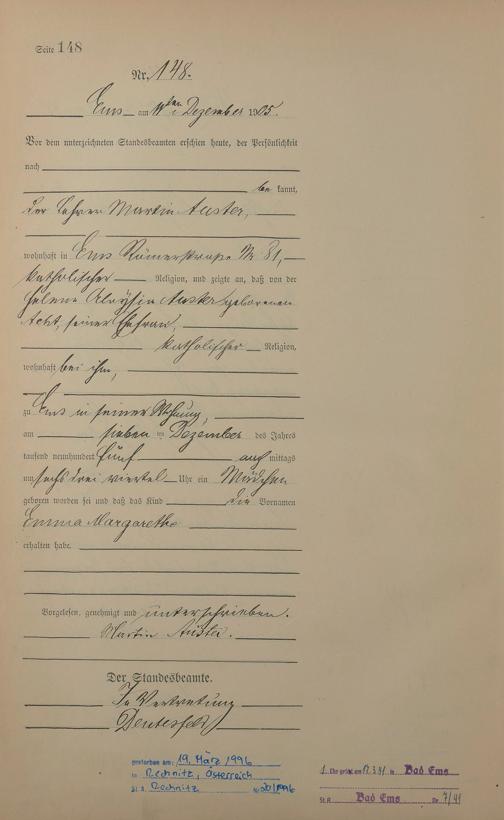 Seite 148
Nr. 148.
Ems am 11ten Dezember 1905.
Vor dem unterzeichneten Standesbeamten erschien heute, der Persönlichkeit
nach
be kannt,
der Lehrer Martin Auster,
wohnhaft in Ems Römerstraße Nr 81,
katholischer Religion, und zeigte an, daß von der
Helene Aloysia Auster geborenen
Acht, seiner Ehefrau,
katholischer Religion,
wohnhaft bei ihm,
zu Ems in seiner Wohnung,
am sieben ten Dezember des Jahres
tausend neunhundert fünf mittags
um sechs drei viertel Uhr ein Mädchen
geboren worden sei und daß das Kind die Vornamen
Emma Margaretha
erhalten habe.
Vorgelesen, genehmigt und unterschrieben.
Martin Auster.
Der Standesbeamte.
In Vertretung
gestorben am: 19. März 1996
in Rechnitz, Österreich
St. A. Rechnitz Nr. 20/1996
1. Ehe geschl. am in Bad Ems
St. A. Bad Ems Nr. 7/41